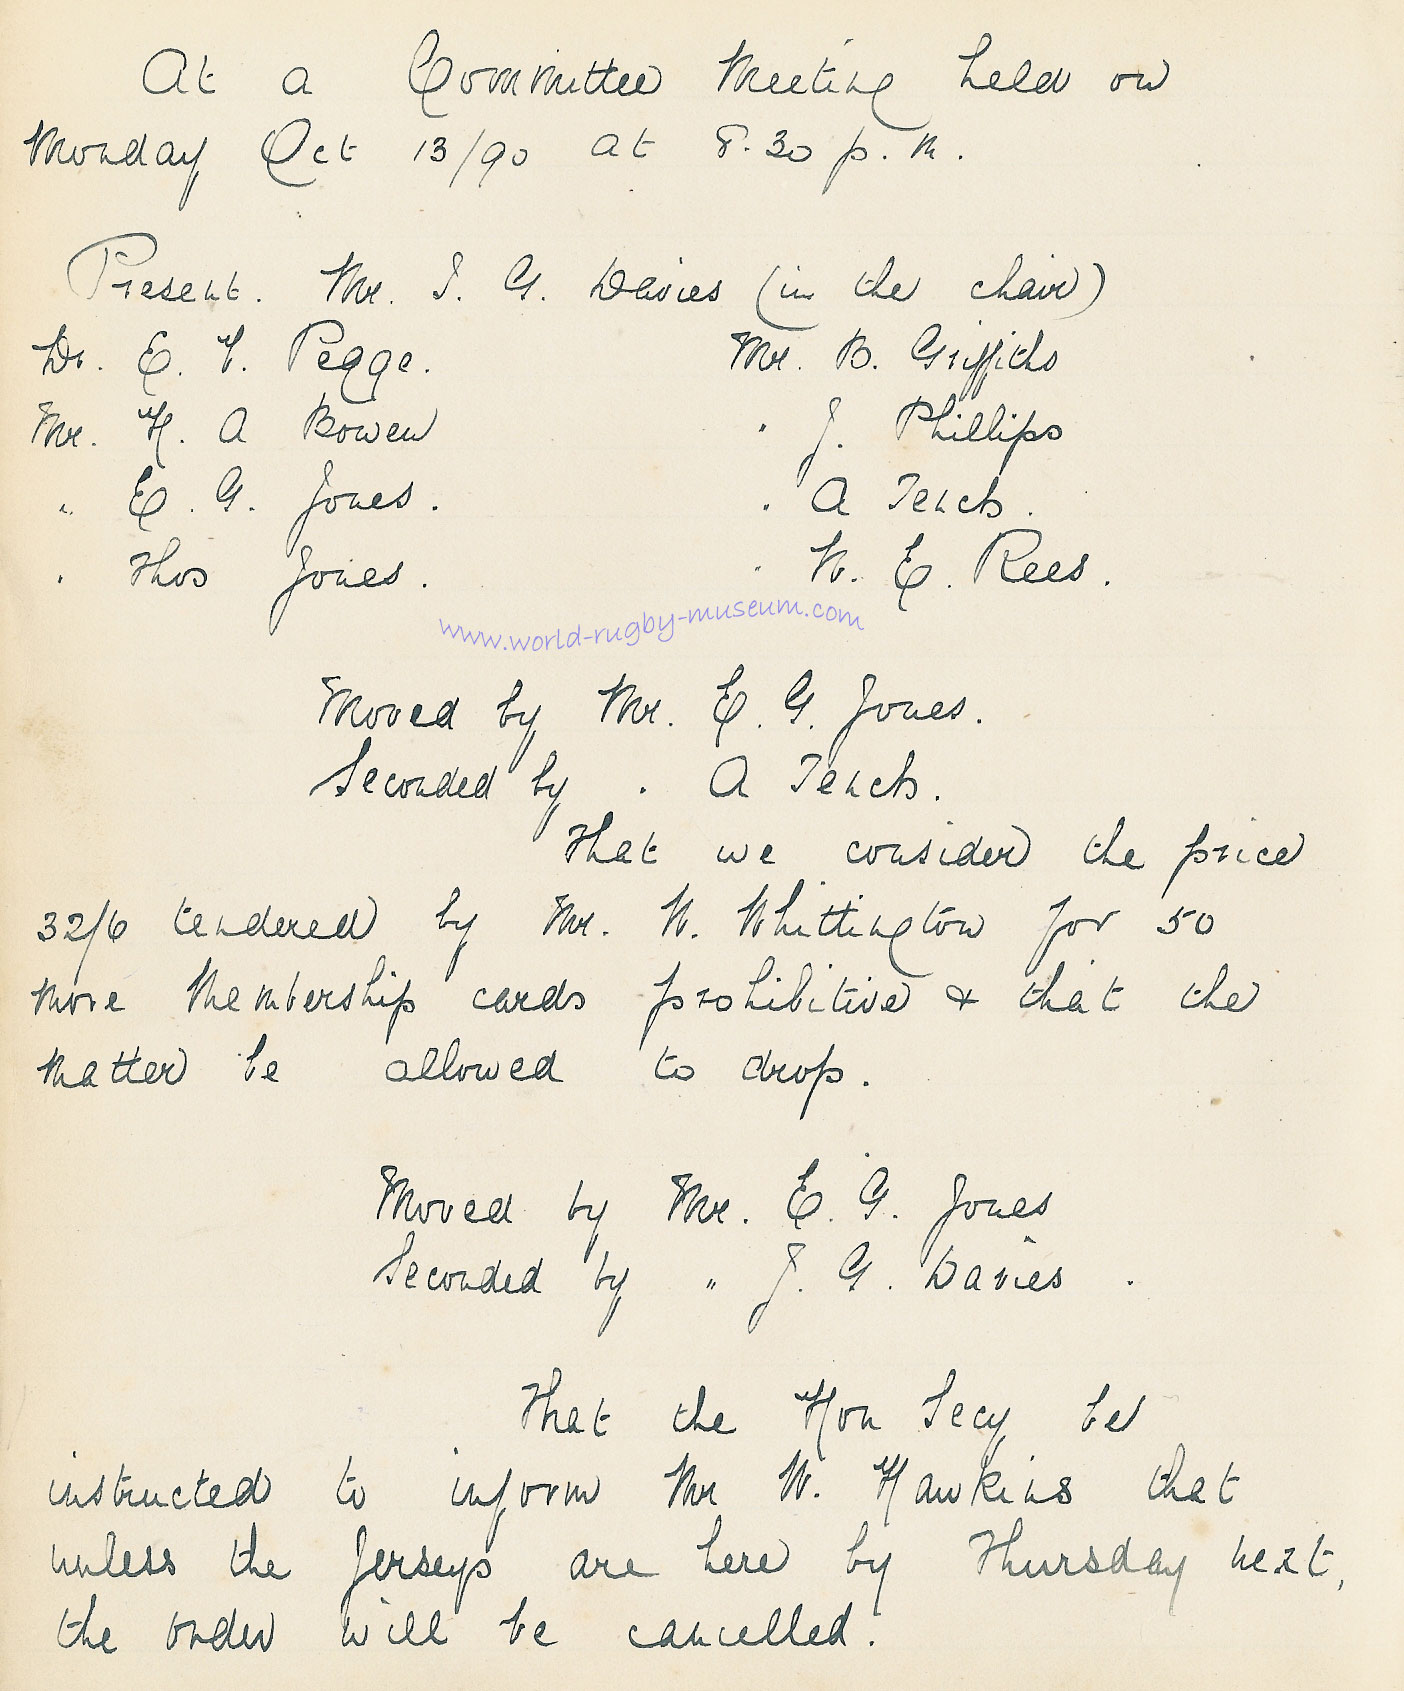 At a Committee Meeting held on
Monday Oct 13/90 at 8.30 p.m.
Present. Mr. J. G. Davies (in the chair)
Dr. E. V. Pegge. Mr. B. Griffiths
Mr. H. A Bowen " J. Phillips
" E. G. Jones. " A Tench.
" Thos Jones. " W. E. Rees.
www.world-rugby-museum.com
Moved by Mr. E. G. Jones.
Seconded by " A Tench.
That we consider the price
32/6 tendered by Mr. W. Whittington for 50
more Membership cards prohibitive & that the
matter be allowed to drop.
Moved by Mr. E. G. Jones
Seconded by " J. G. Davies.
That the Hon Secy be
instructed to inform Mr W. Hawkins that
unless the Jerseys are here by Thursday next,
the order will be cancelled.